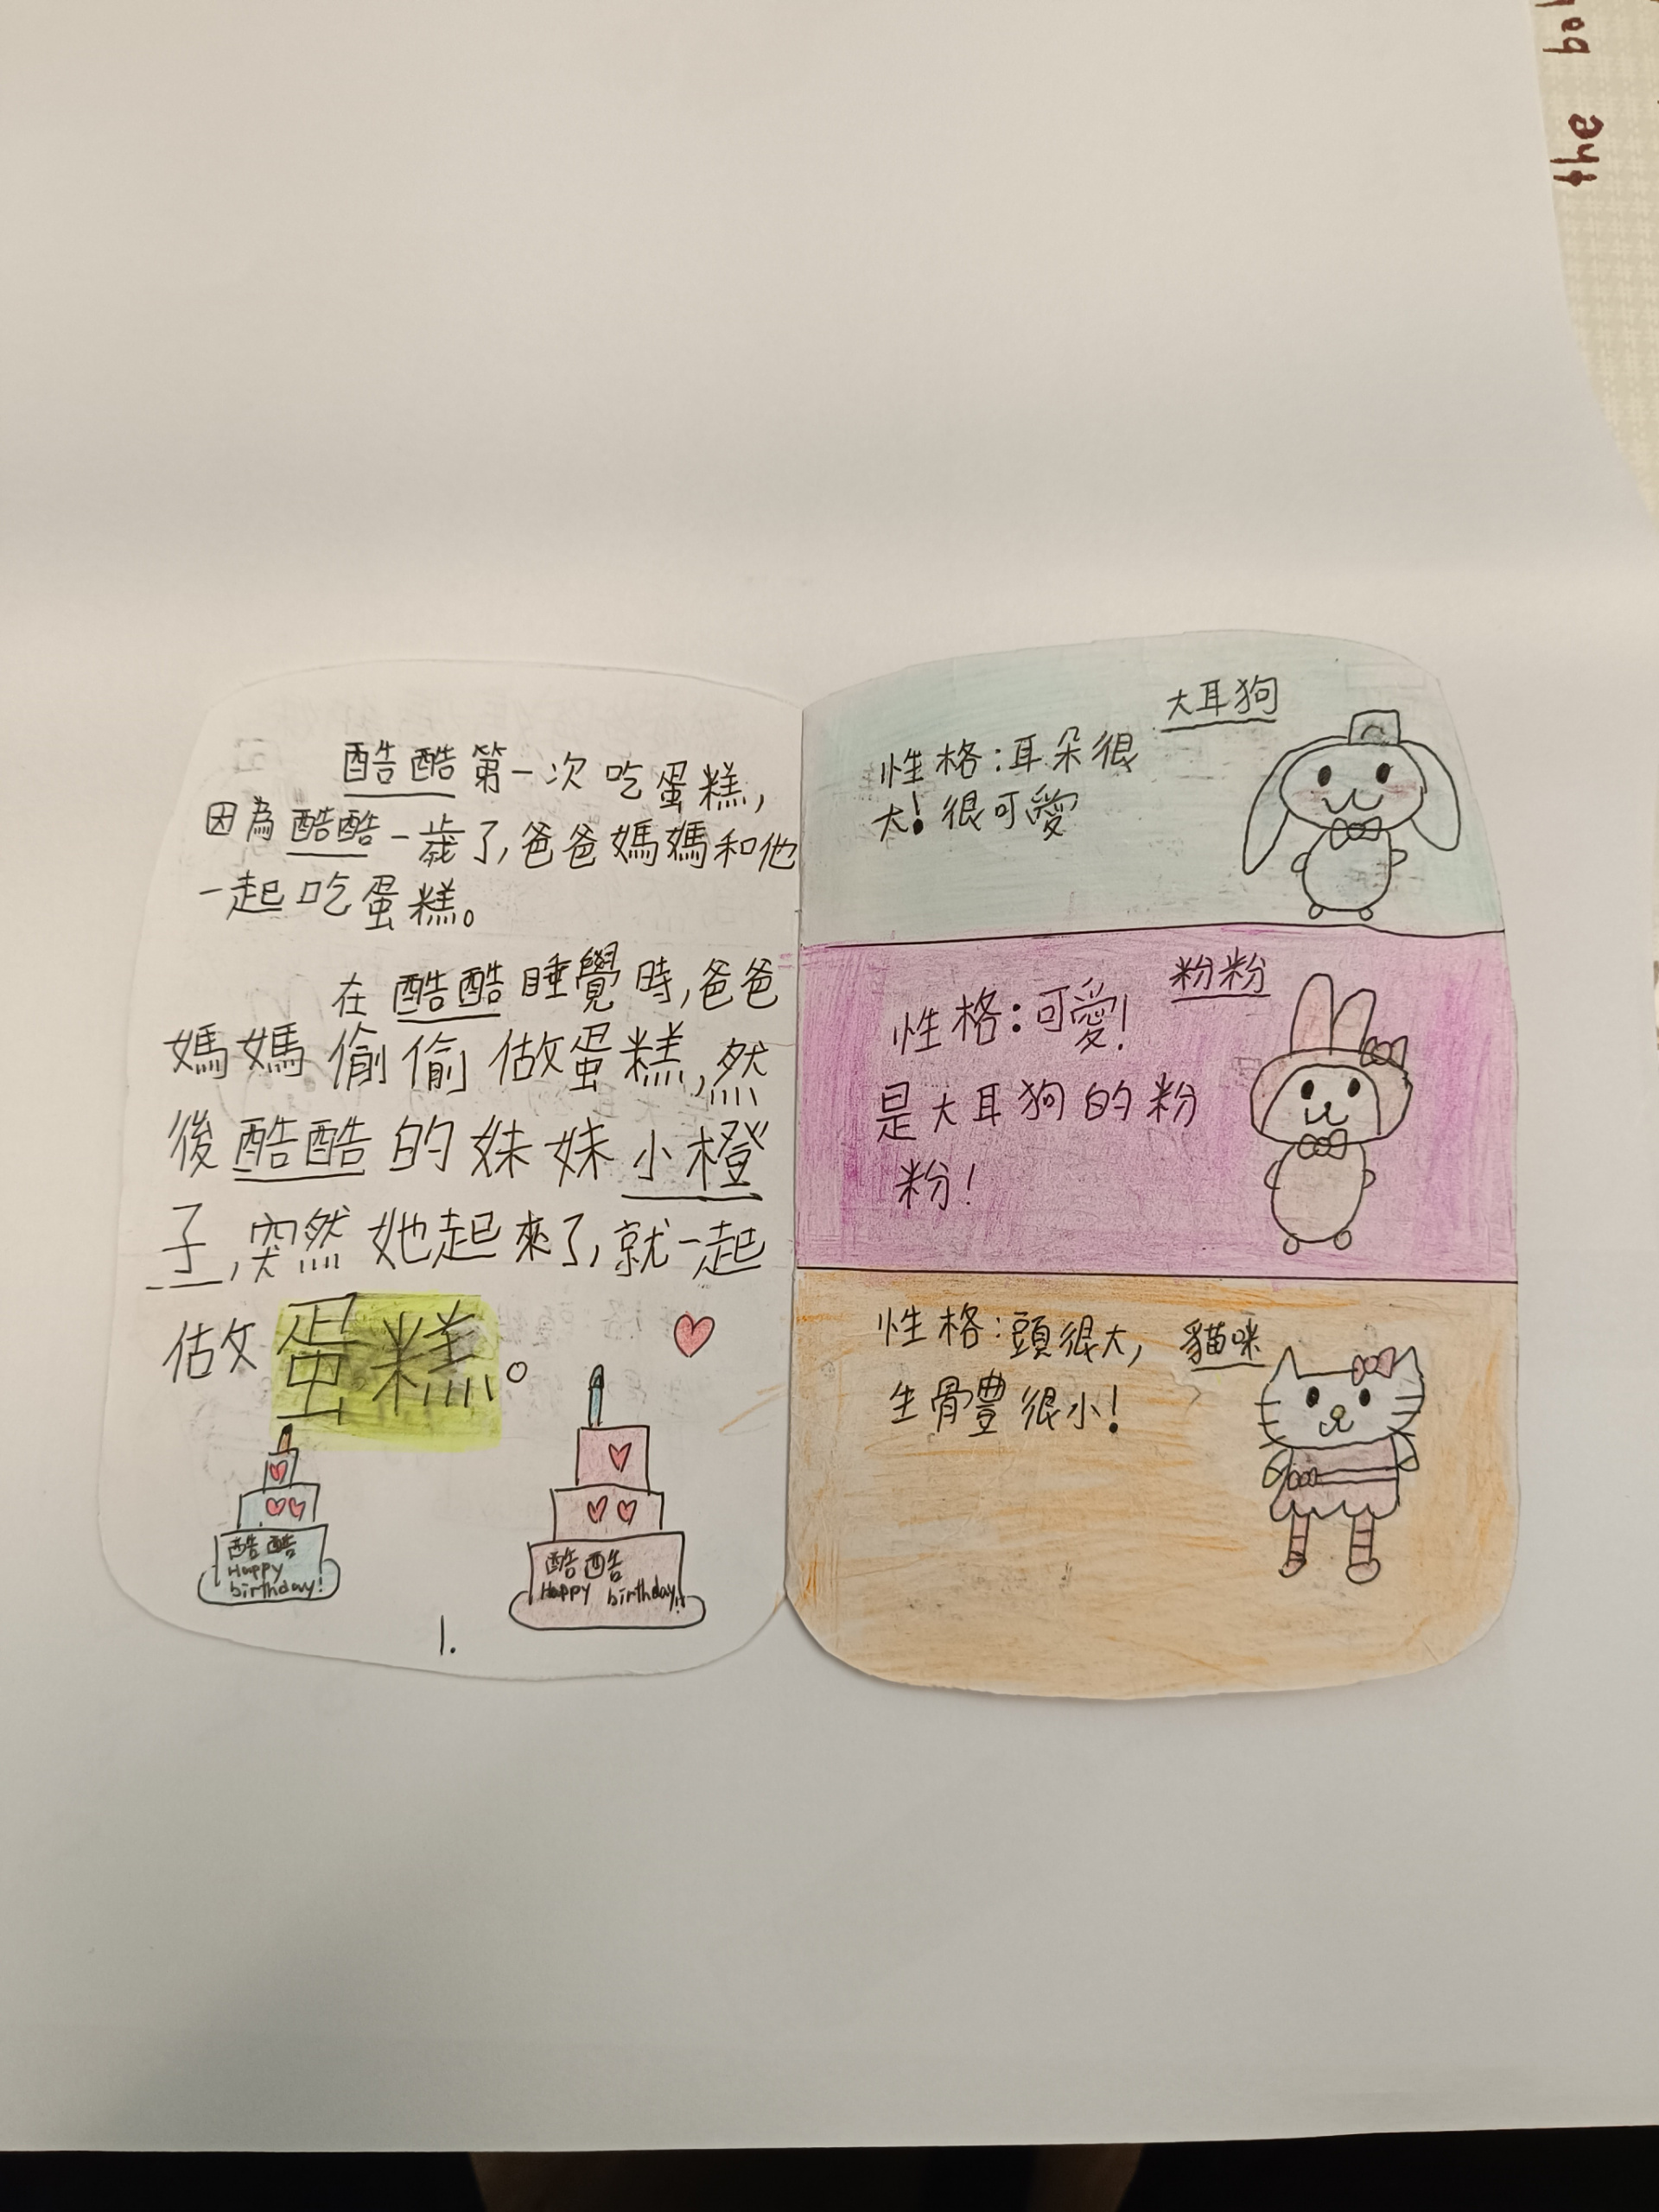 酷酷第一次吃蛋糕,
因為酷酷一歲了,爸爸媽媽和他
一起吃蛋糕。
在酷酷睡覺時,爸爸
媽媽偷偷做蛋糕,然
後酷酷的妹妹小橙
子,突然她起來了,就一起
做蛋糕。
酷酷
Happy
birthday!
酷酷
Happy birthday!!
1.
大耳狗
性格:耳朵很
大!很可愛
粉粉
性格:可愛!
是大耳狗的粉
粉!
貓咪
性格:頭很大,
生骨豊很小!
the